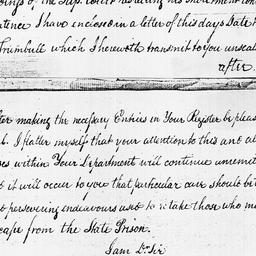 of the Sup. Court
tence I have inclosed in a letter of this days Date to
Trumbull which I herewith transmit to you unseal
after
fter making the necessary Entries in Your Register be pleas
d. I flatter myself that your attention to this and al
ses within Your Department will continue unremit
d it will occur to you that particular care should be t
d persevering endeavours used to retake those who ma
cape from the State Prison.
I am Dr Sir